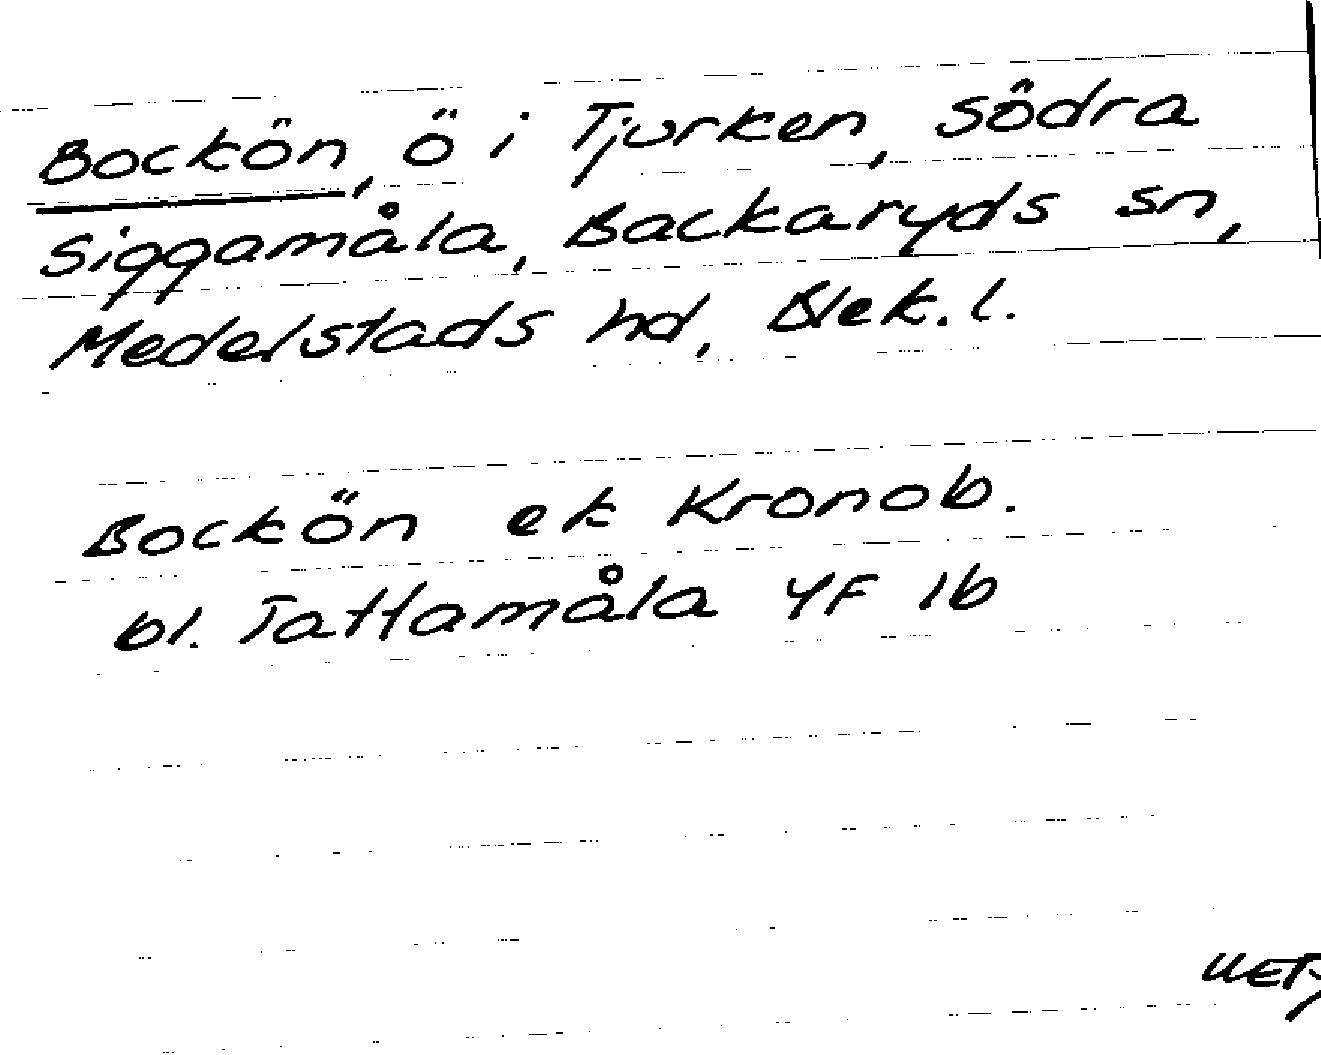 Bockön, ö i Tjurken, södra
Siggamåla, Backaryds sn,
Medelstads hd, Blek. l.
Bockön ek Kronob.
bl. Tattamåla 4F 1b